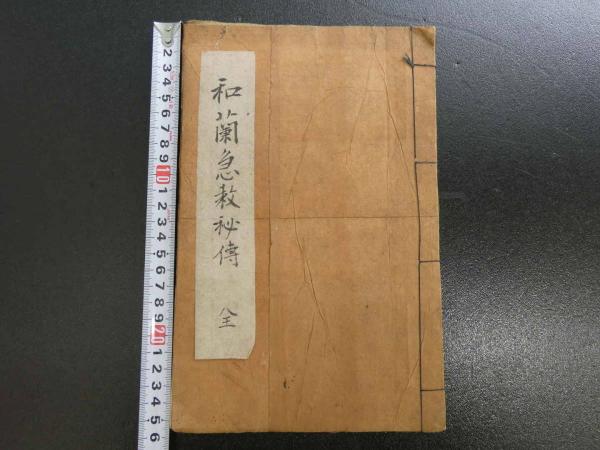 和蘭急救秘傳 全
2 3 4 5 6 7 8 9 10 1 2 3 4 5 6 7 8 9 20 1 2 3 4 5 6